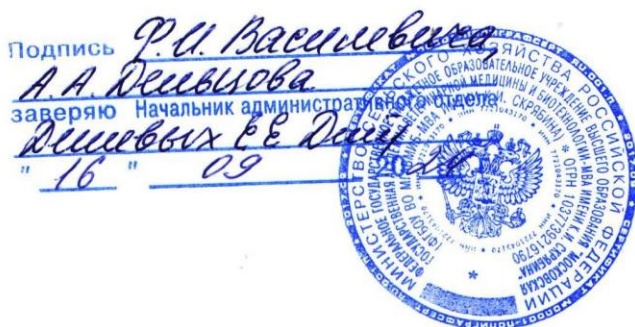 Подпись Ф.И. Василевича,
А.А. Дельцова
заверяю Начальник административного отдела
Дешевых Е.Е.
" 16 " 09 20
МИНИСТЕРСТВО СЕЛЬСКОГО ХОЗЯЙСТВА РОССИЙСКОЙ ФЕДЕРАЦИИ
ФЕДЕРАЛЬНОЕ ГОСУДАРСТВЕННОЕ БЮДЖЕТНОЕ ОБРАЗОВАТЕЛЬНОЕ УЧРЕЖДЕНИЕ ВЫСШЕГО ОБРАЗОВАНИЯ "МОСКОВСКАЯ
ГОСУДАРСТВЕННАЯ АКАДЕМИЯ ВЕТЕРИНАРНОЙ МЕДИЦИНЫ И БИОТЕХНОЛОГИИ-МВА ИМЕНИ К.И. СКРЯБИНА"
* ОГРН 1037739216790